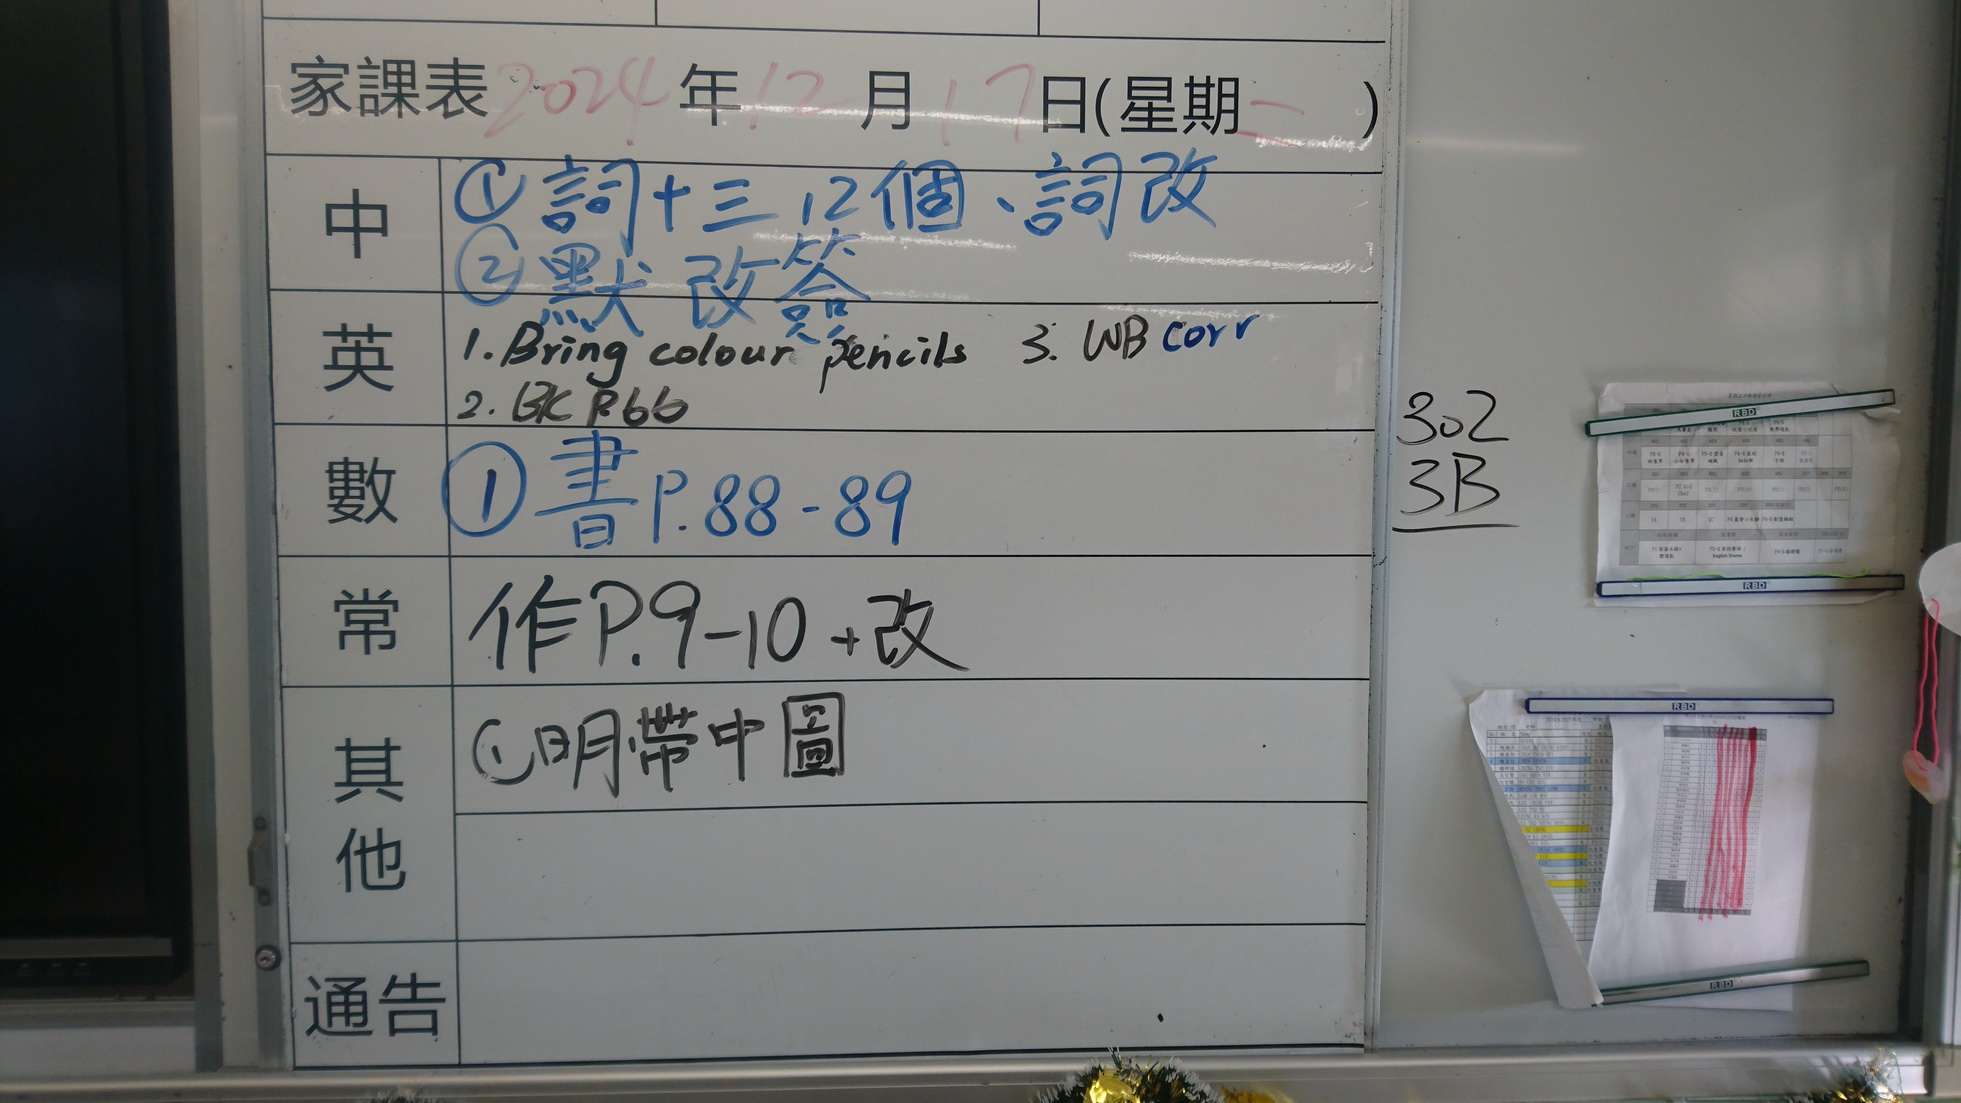 家課表 2024 年 12 月 17 日(星期二 )
中
①詞十三 12個、詞改
②默改簽
英
1. Bring colour pencils 3. WB corr
2. BK P.66
數
①書P.88-89
常
作P.9-10+改
其他
①明帶中圖
通告
302
3B
RBD
RBD
RBD
RBD